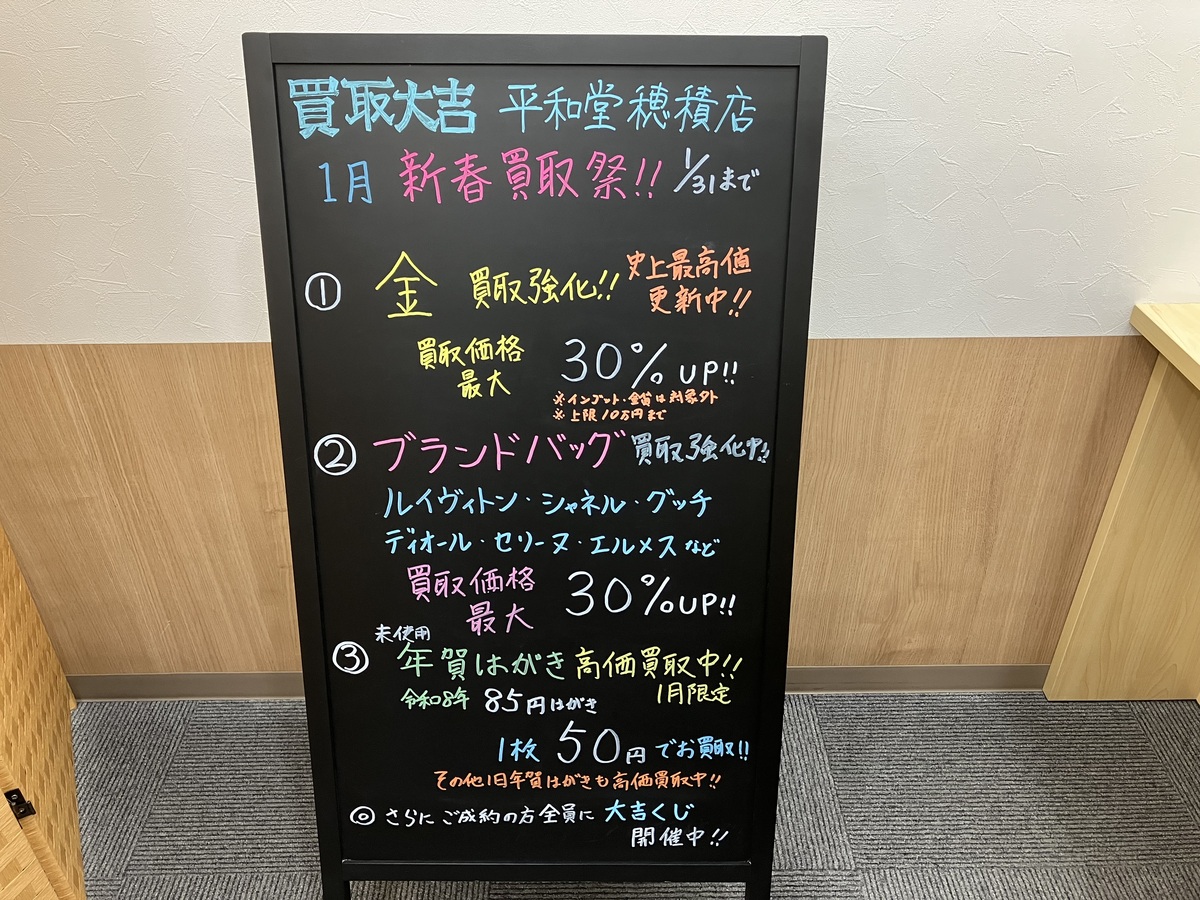 買取大吉 平和堂穂積店
1月 新春買取祭!! 1/31まで
① 金 買取強化!! 史上最高値
更新中!!
買取価格
最大 30%UP!!
※インゴット・金貨は対象外
※上限10万円まで
② ブランドバッグ 買取強化中!!
ルイヴィトン・シャネル・グッチ
ディオール・セリーヌ・エルメスなど
買取価格
最大 30%UP!!
未使用
③ 年賀はがき 高価買取中!!
1月限定
令和8年 85円はがき
1枚 50円でお買取!!
その他旧年賀はがきも高価買取中!!
◎ さらにご成約の方全員に 大吉くじ
開催中!!